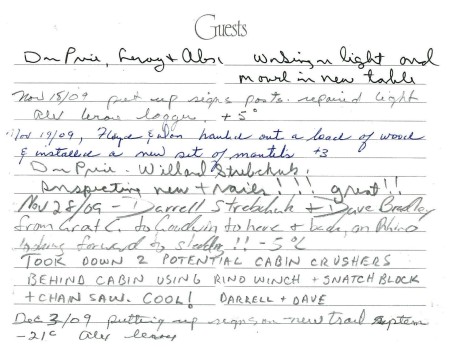 Guests
Don Price, Leroy + Abs, working on light and
moved in new table
Nov 15/09 put up signs posts. repaired light
alex leroy logger. +5°
Nov 19/09, Floyd & Don hauled out a load of wood
& installed a new set of mantels +3
Don Price - Willard Strebchuk:
Inspecting new trails!!! great!!
Nov 28/09 - Darrell Strebchuk + Dave Bradley
from Grat C. to Goodwin to here & back, on Rhino
looking forward to sledding!! -5°C
TOOK DOWN 2 POTENTIAL CABIN CRUSHERS
BEHIND CABIN USING RINO WINCH + SNATCH BLOCK
+ CHAIN SAW. COOL! DARRELL + DAVE
Dec 3/09 putting up signs on new trail system
-21c alex leroy